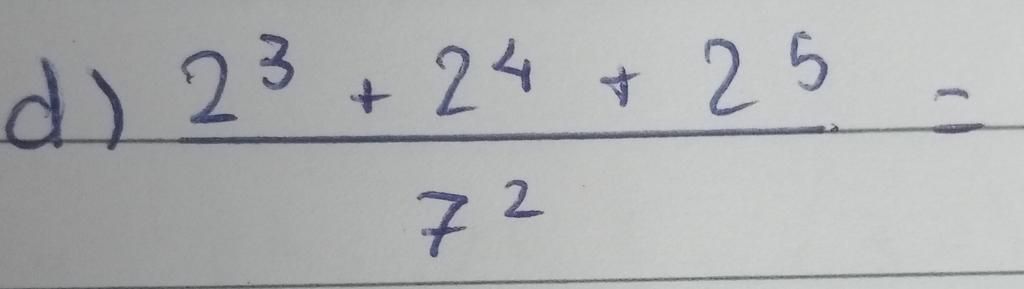 d) 2³ + 2⁴ + 2⁵ =
7²